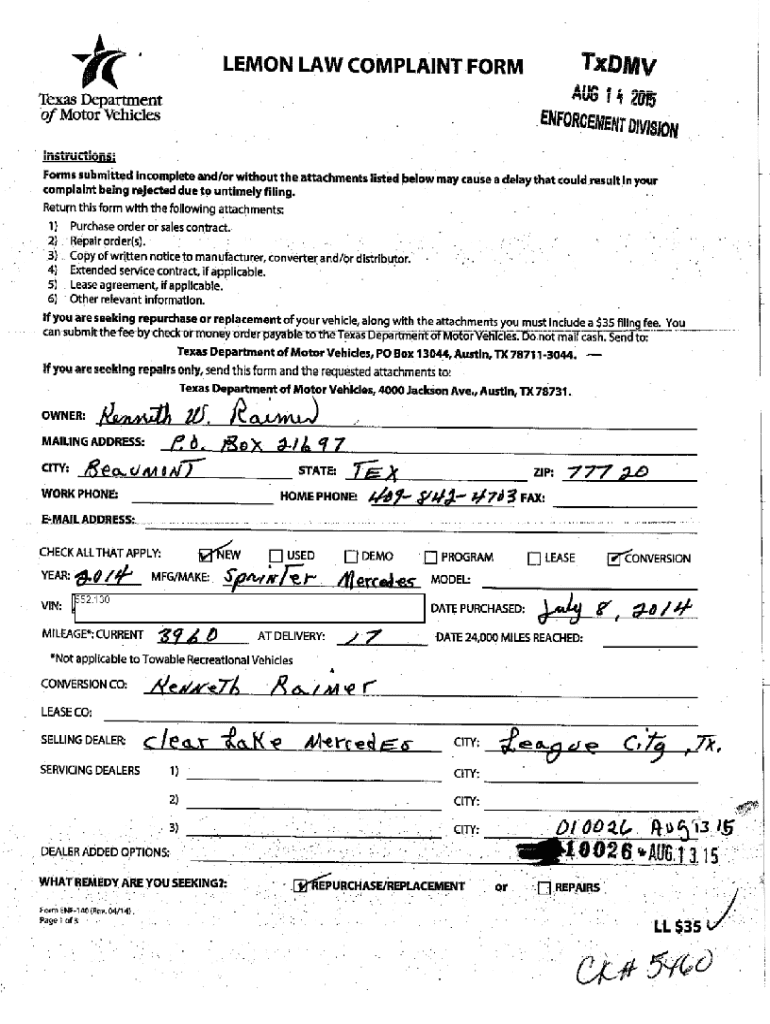 LEMON LAW COMPLAINT FORM
TxDMV
AUG 14 2015
ENFORCEMENT DIVISION
Texas Department
of Motor Vehicles
Instructions:
Forms submitted incomplete and/or without the attachments listed below may cause a delay that could result in your
complaint being rejected due to untimely filing.
Return this form with the following attachments:
1) Purchase order or sales contract.
2) Repair order(s).
3) Copy of written notice to manufacturer, converter and/or distributor.
4) Extended service contract, if applicable.
5) Lease agreement, if applicable.
6) Other relevant information.
If you are seeking repurchase or replacement of your vehicle, along with the attachments you must include a $35 filing fee. You
can submit the fee by check or money order payable to the Texas Department of Motor Vehicles. Do not mail cash. Send to:
Texas Department of Motor Vehicles, PO Box 13044, Austin, TX 78711-3044. —
If you are seeking repairs only, send this form and the requested attachments to:
Texas Department of Motor Vehicles, 4000 Jackson Ave., Austin, TX 78731.
OWNER: Kenneth W. Raimer
MAILING ADDRESS: P.O. Box 21697
CITY: BeaUMONT STATE: TEX ZIP: 77720
WORK PHONE: HOME PHONE: 409-842-4703 FAX:
E-MAIL ADDRESS:
CHECK ALL THAT APPLY: NEW USED DEMO PROGRAM LEASE CONVERSION
YEAR: 2014 MFG/MAKE: Sprinter Mercedes MODEL:
VIN: 552.130 DATE PURCHASED: July 8, 2014
MILEAGE*: CURRENT 3960 AT DELIVERY: 17 DATE 24,000 MILES REACHED:
*Not applicable to Towable Recreational Vehicles
CONVERSION CO: KenneTh Raimer
LEASE CO:
SELLING DEALER: Clear Lake Mercedes CITY: League City, Tx.
SERVICING DEALERS 1) CITY:
2) CITY:
3) CITY: 010026 AUG 13 15
DEALER ADDED OPTIONS: 10026 AUG.13.15
WHAT REMEDY ARE YOU SEEKING?: REPURCHASE/REPLACEMENT or REPAIRS
Form ENF-140 (Rev. 04/14)
Page 1 of 3
LL $35
CK# 5460